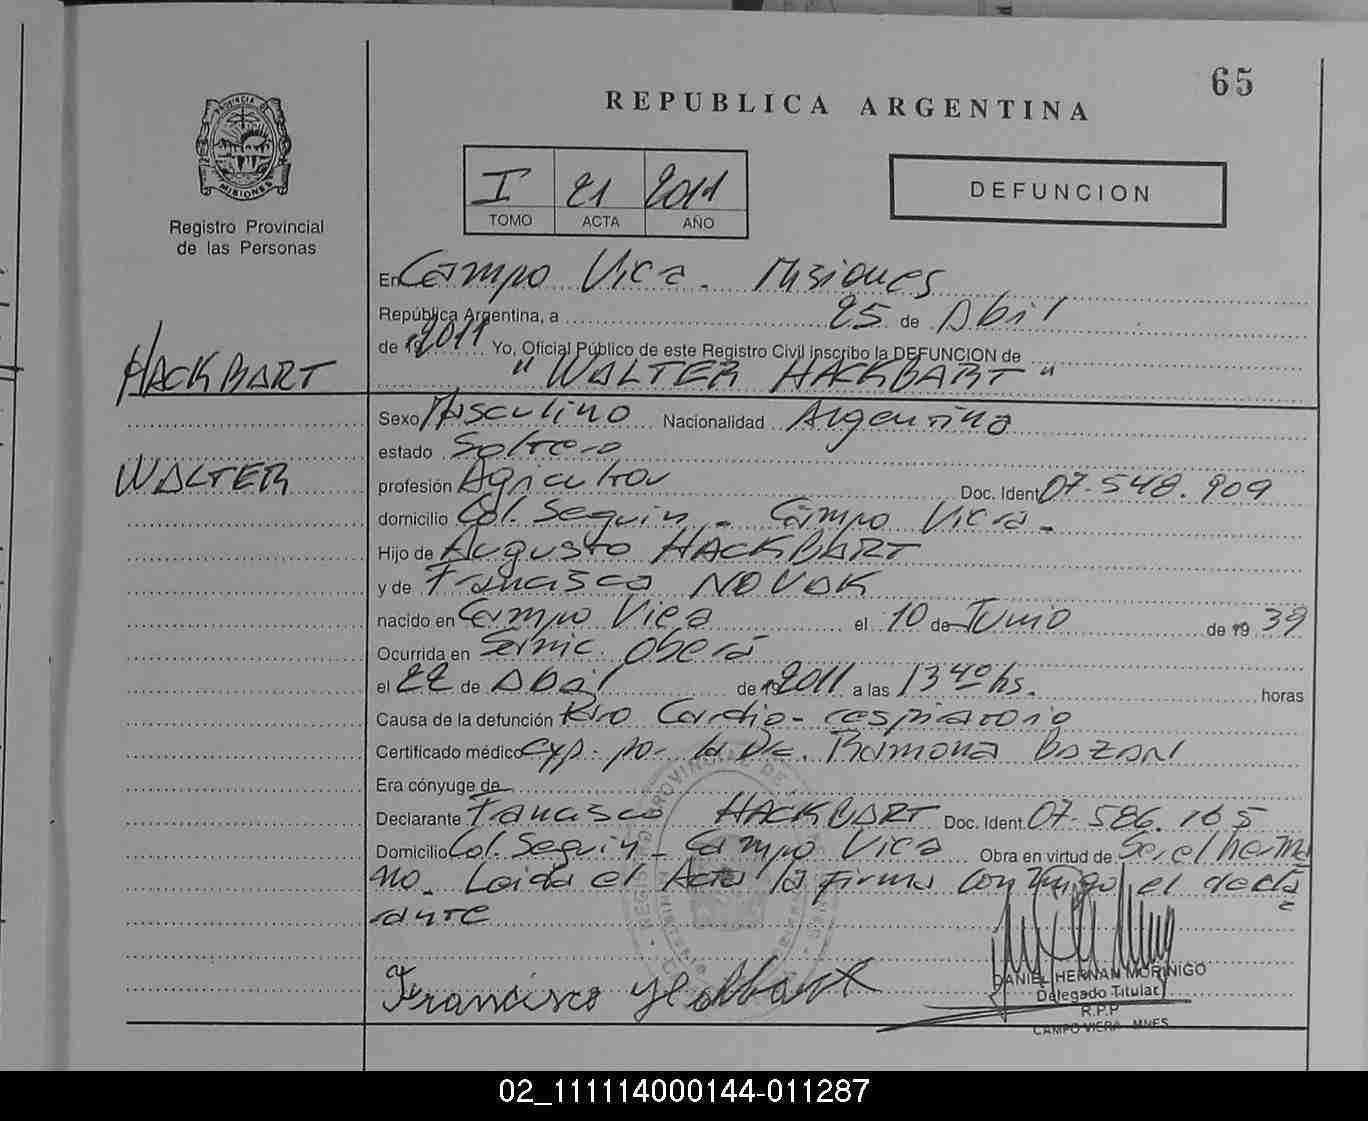 65
REPUBLICA ARGENTINA
PROVINCIA DE
MISIONES
Registro Provincial
de las Personas
I 21 2011
TOMO ACTA AÑO
DEFUNCION
En Campo Viera. Misiones
República Argentina, a 25 de Abril
de 2011 Yo, Oficial Público de este Registro Civil inscribo la DEFUNCION de
HACKBART
"WALTER HACKBART"
Sexo Masculino Nacionalidad Argentina
estado Soltero
WALTER
profesión Agricultor Doc. Ident. 07.548.909
domicilio Col. Seguin - Campo Viera -
Hijo de Augusto HACKBART
y de Francisca NOVAK
nacido en Campo Viera el 10 de Junio de 19 39
Ocurrida en Obera
el 22 de Abril de 2011 a las 13 40 hs. horas
Causa de la defunción Paro Cardio-respiratorio
Certificado médico exp. por la Dra. Ramona BAZAN
Era cónyuge de
Declarante Francisco HACKBART Doc. Ident. 07.586.165
Domicilio Col. Seguin - Campo Viera Obra en virtud de Ser el herma
no. Leida el Acta la firma conmigo el decla
rante
Francisco Hackbart
DANIEL HERNAN MORINIGO
Delegado Titular
R.P.P
CAMPO VIERA - MNES
02_111114000144-011287